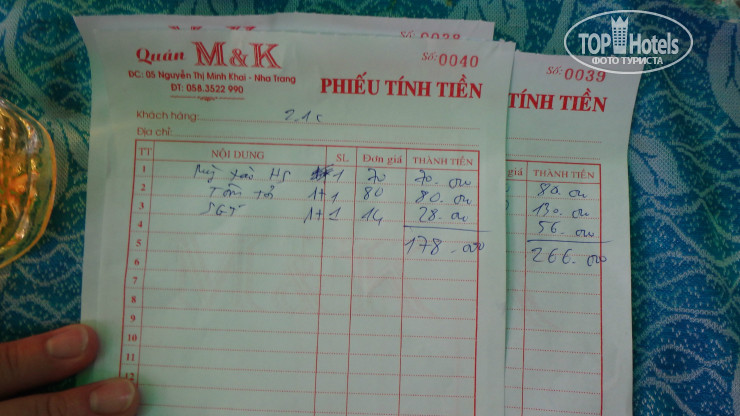 TOP Hotels
ФОТО ТУРИСТА
Số: 0038
Quán M&K
ĐC: 05 Nguyễn Thị Minh Khai - Nha Trang
ĐT: 058.3522 990
Số: 0040
PHIẾU TÍNH TIỀN
Khách hàng:
Địa chỉ:
TT NỘI DUNG SL Đơn giá THÀNH TIỀN
1 Mỳ xào HS 1 70 70.000
2 Tôm 1+1 80 80.000
3 SGT 1+1 14 28.000
4
5 178.000
6
7
8
9
10
11
12
Số: 0039
TÍNH TIỀN
THÀNH TIỀN
80.000
130.000
56.000
266.000